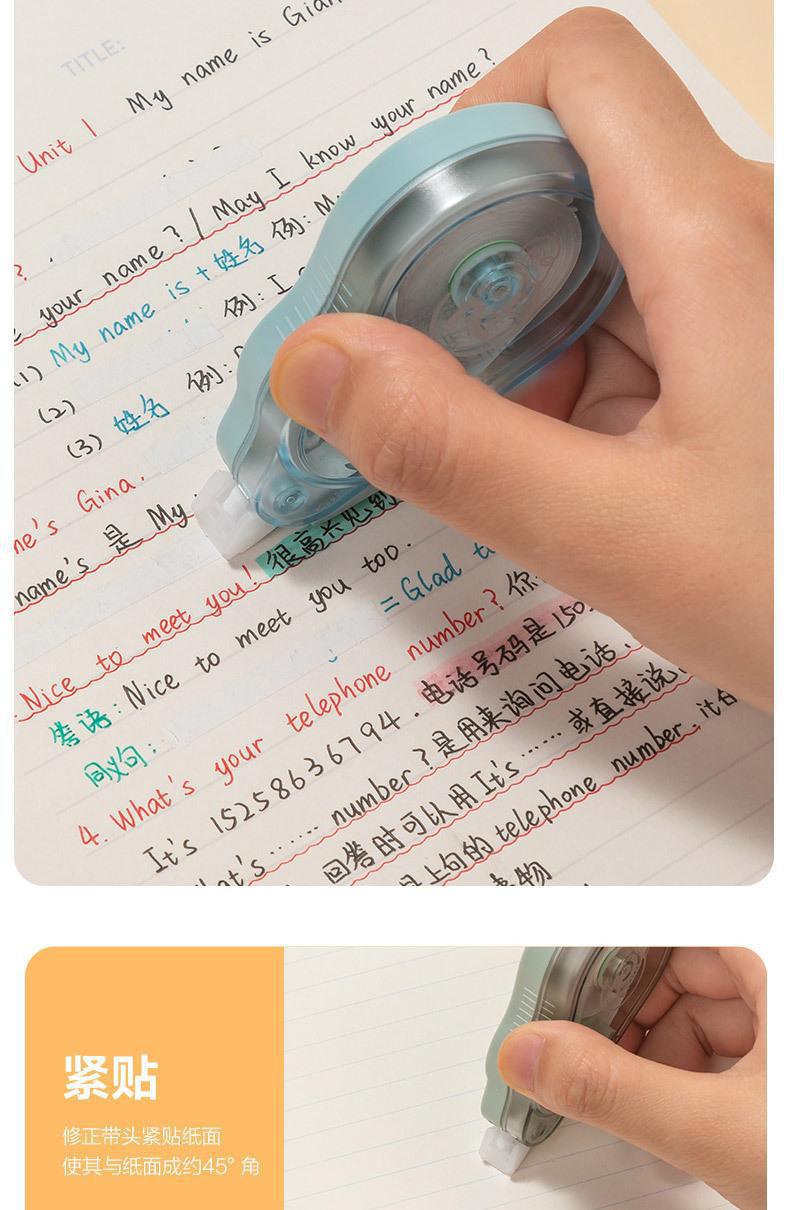 TITLE:
Unit 1 My name is Gian
your name?
your name? / May I know
(1) My name is + 姓名 例: M
(2) 例: I
(3) 姓名 例:
me's Gina.
name's 是 My
Nice to meet you! 很高兴见到
答语: Nice to meet you too.
同义句: = Glad t
4. What's your telephone number? 你
It's 15258636794. 电话号码是150
What's …… number? 是用来询问电话,
回答时可以用 It's …… 或直接说
上句的 telephone number. it
物
紧贴
修正带头紧贴纸面
使其与纸面成约45° 角